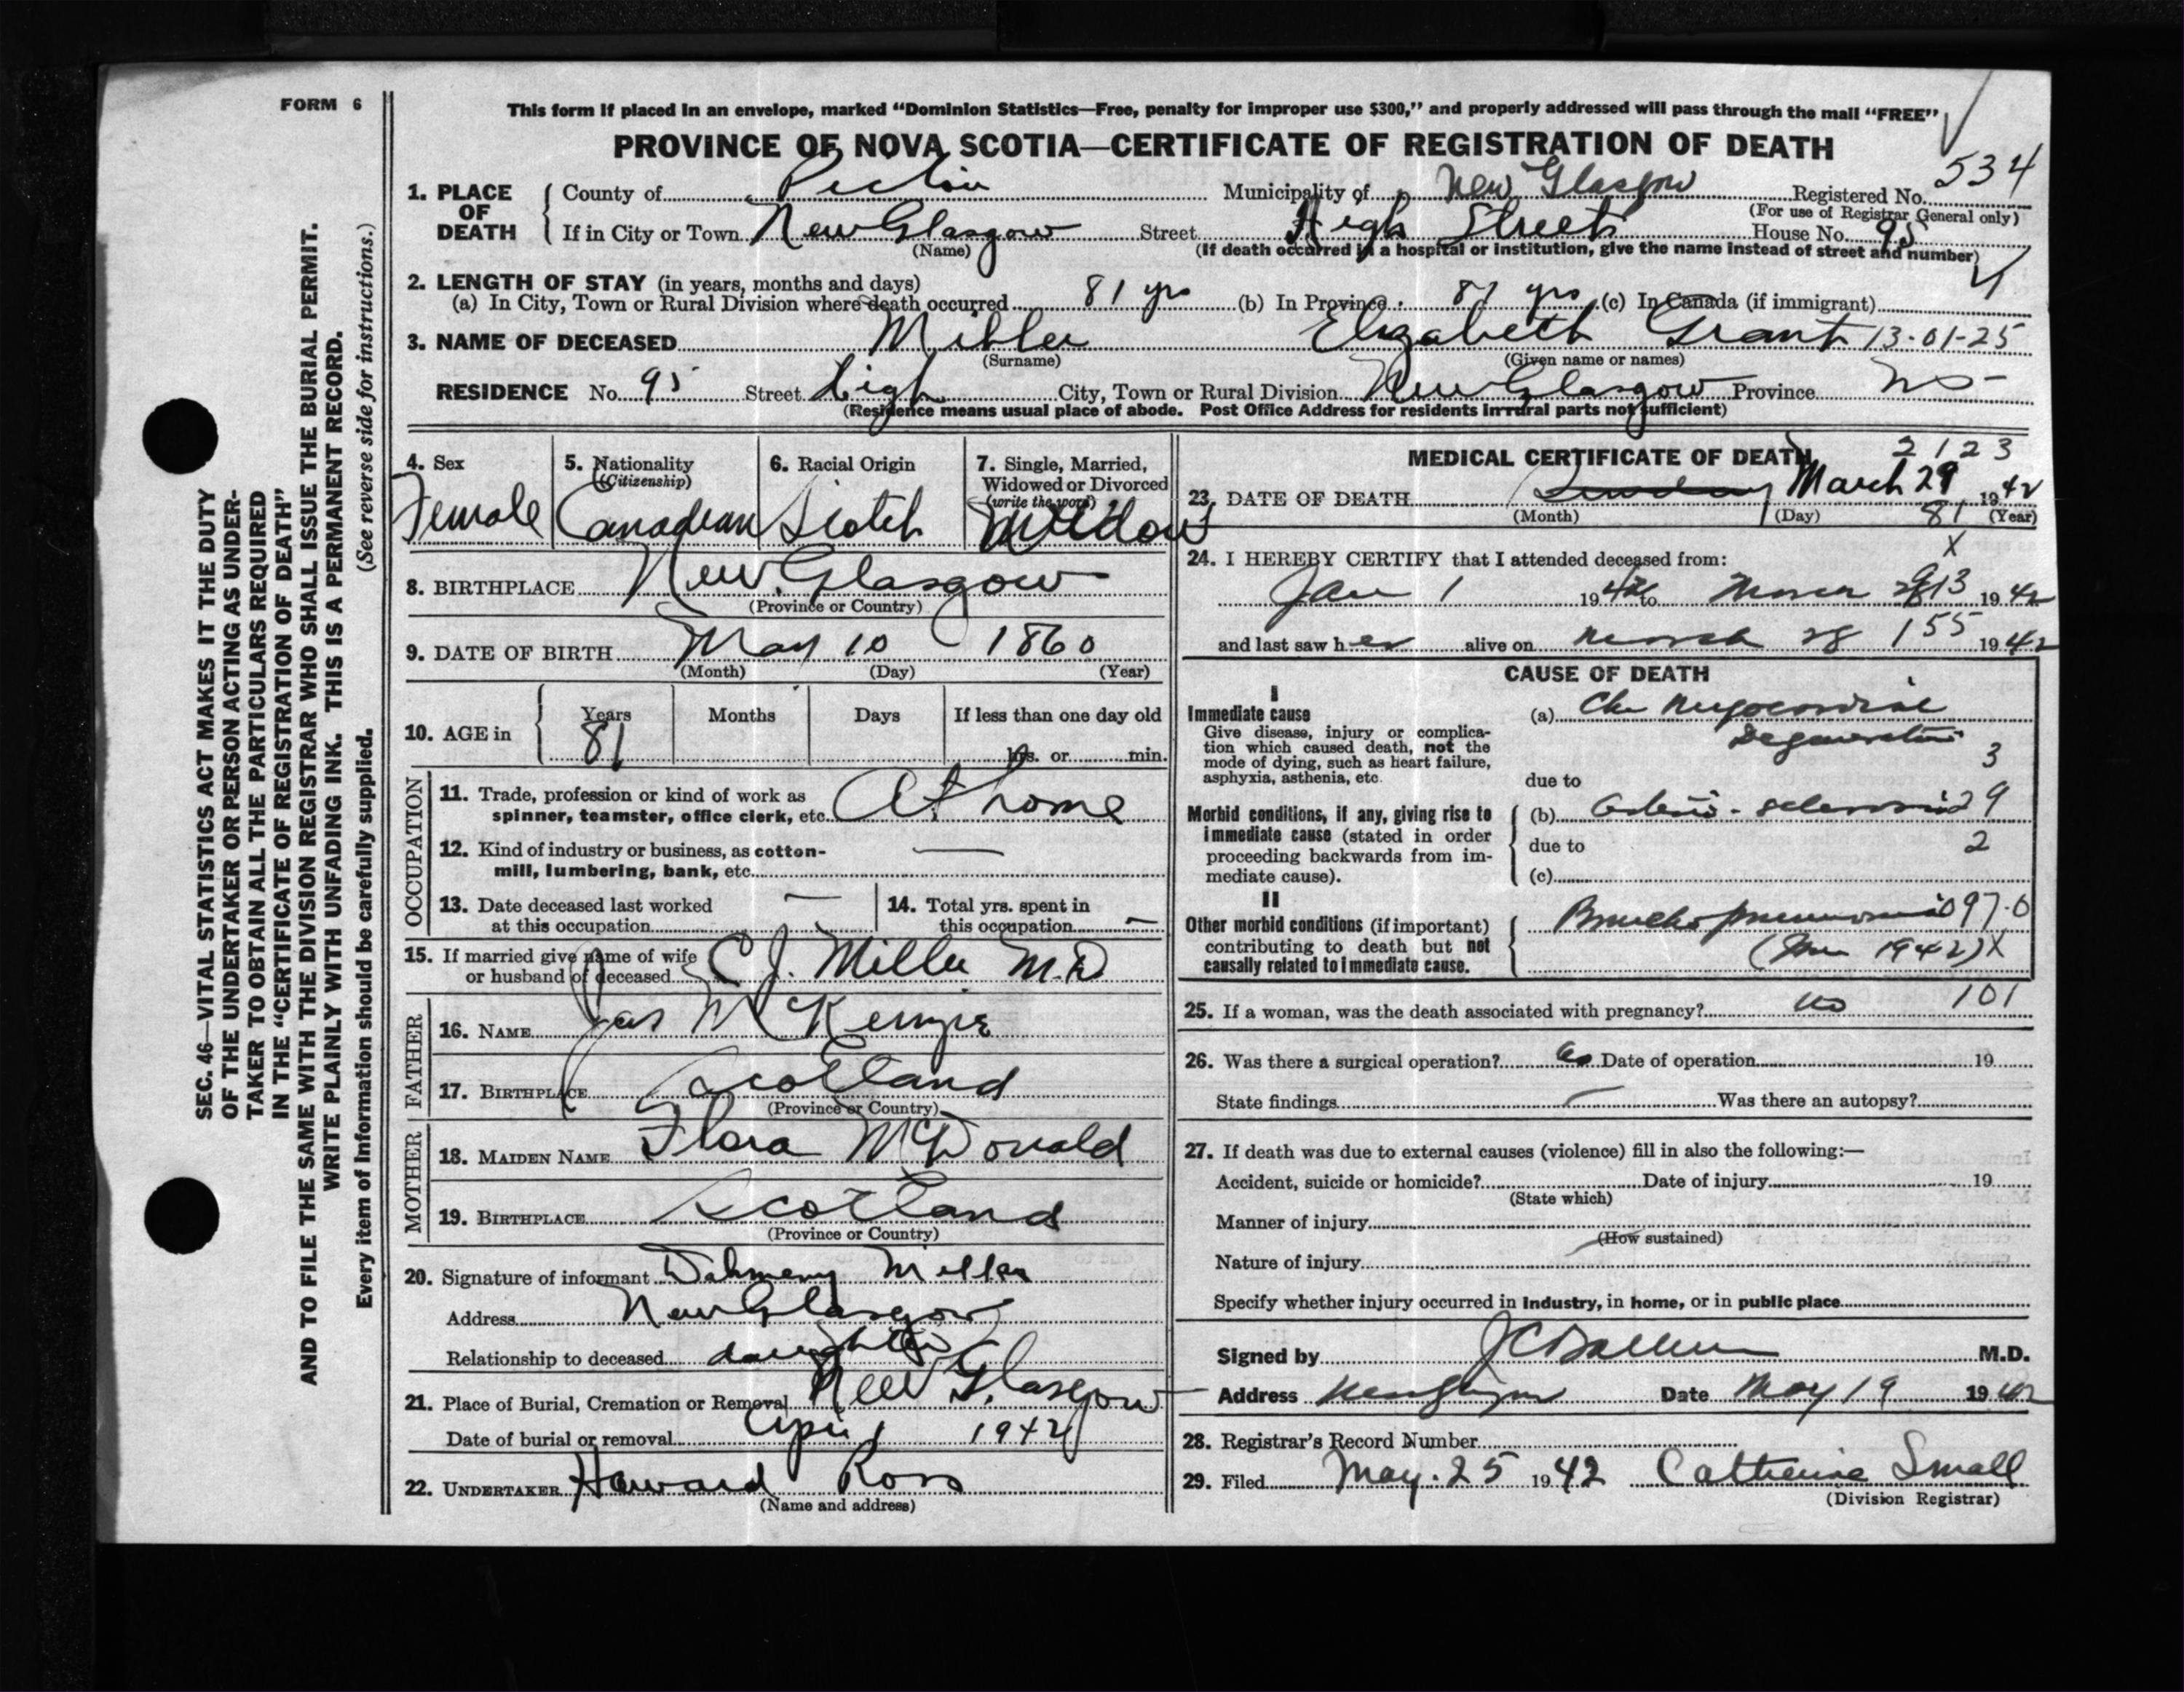 FORM 6
This form if placed in an envelope, marked “Dominion Statistics—Free, penalty for improper use $300,” and properly addressed will pass through the mail “FREE”
PROVINCE OF NOVA SCOTIA—CERTIFICATE OF REGISTRATION OF DEATH
534
1. PLACE OF DEATH County of Pictou Municipality of New Glasgow Registered No.
(For use of Registrar General only)
If in City or Town New Glasgow Street High Street House No. 95
(Name) (If death occurred in a hospital or institution, give the name instead of street and number)
2. LENGTH OF STAY (in years, months and days)
(a) In City, Town or Rural Division where death occurred 81 yrs (b) In Province 81 yrs (c) In Canada (if immigrant)
3. NAME OF DECEASED Miller Elizabeth Grant 13-01-25
(Surname) (Given name or names)
RESIDENCE No. 95 Street High City, Town or Rural Division New Glasgow Province NS
(Residence means usual place of abode. Post Office Address for residents in rural parts not sufficient)
4. Sex 5. Nationality 6. Racial Origin 7. Single, Married,
(Citizenship) Widowed or Divorced
(write the word)
Female Canadian Scotch Widow
8. BIRTHPLACE New Glasgow
(Province or Country)
9. DATE OF BIRTH May 10 1860
(Month) (Day) (Year)
Years Months Days If less than one day old
10. AGE in 81 hrs. or min.
OCCUPATION
11. Trade, profession or kind of work as
spinner, teamster, office clerk, etc. At home
12. Kind of industry or business, as cotton-
mill, lumbering, bank, etc. —
13. Date deceased last worked —
at this occupation
14. Total yrs. spent in
this occupation —
15. If married give name of wife
or husband of deceased C J. Miller M.D
FATHER
16. NAME Jas McKenzie
17. BIRTHPLACE Scotland
(Province or Country)
MOTHER
18. MAIDEN NAME Flora McDonald
19. BIRTHPLACE Scotland
(Province or Country)
20. Signature of informant Miller
Address New Glasgow
Relationship to deceased daughter
21. Place of Burial, Cremation or Removal New Glasgow
Date of burial or removal April 1 1942
22. UNDERTAKER Howard Ross
(Name and address)
MEDICAL CERTIFICATE OF DEATH 2123
23. DATE OF DEATH March 29 1942
(Month) (Day) 81 (Year)
24. I HEREBY CERTIFY that I attended deceased from: X
Jan 1 1942 to March 1942
and last saw her alive on March 28 155 1942
CAUSE OF DEATH
I
Immediate cause
Give disease, injury or complica-
tion which caused death, not the
mode of dying, such as heart failure,
asphyxia, asthenia, etc.
(a) Chr Myocardial
Degeneration
3
due to
Morbid conditions, if any, giving rise to
immediate cause (stated in order
proceeding backwards from im-
mediate cause).
(b) Arterio-sclerosis 29
due to 2
(c)
II
Other morbid conditions (if important)
contributing to death but not
causally related to immediate cause.
Broncho pneumonia 097.0
(Jan 1942) X
25. If a woman, was the death associated with pregnancy? no 101
26. Was there a surgical operation? no Date of operation 19
State findings Was there an autopsy?
27. If death was due to external causes (violence) fill in also the following:—
Accident, suicide or homicide? Date of injury 19
(State which)
Manner of injury
(How sustained)
Nature of injury
Specify whether injury occurred in industry, in home, or in public place
Signed by M.D.
Address New Glasgow Date May 19 1942
28. Registrar's Record Number
29. Filed May. 25 1942 Catherine Small
(Division Registrar)
SEC. 46—VITAL STATISTICS ACT MAKES IT THE DUTY
OF THE UNDERTAKER OR PERSON ACTING AS UNDER-
TAKER TO OBTAIN ALL THE PARTICULARS REQUIRED
IN THE “CERTIFICATE OF REGISTRATION OF DEATH”
AND TO FILE THE SAME WITH THE DIVISION REGISTRAR WHO SHALL ISSUE THE BURIAL PERMIT.
WRITE PLAINLY WITH UNFADING INK. THIS IS A PERMANENT RECORD.
Every item of information should be carefully supplied. (See reverse side for instructions.)